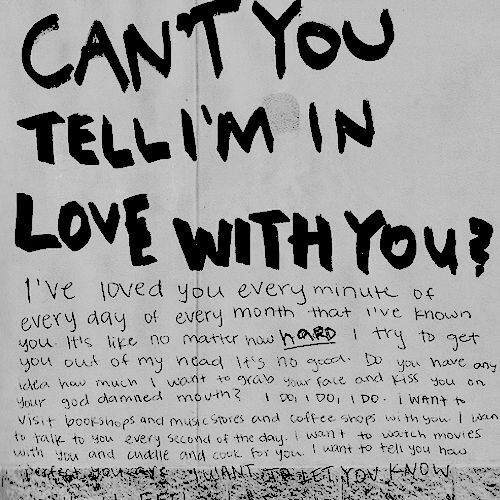 CAN'T YOU
TELL I'M IN
LOVE WITH YOU?
I've loved you every minute of
every day of every month that I've known
you. It's like no matter how hARD I try to get
you out of my head It's no good. Do you have any
idea how much I want to grab your face and kiss you on
your god damned mouth? I DO, I DO, I DO. I WANT to
visit bookshops and music stores and coffee shops with you. I wan
to talk to you every second of the day. I want to watch movies
with you and cuddle and cook for you. I want to tell you how
perfect you are. I WANT TO LET YOU KNOW